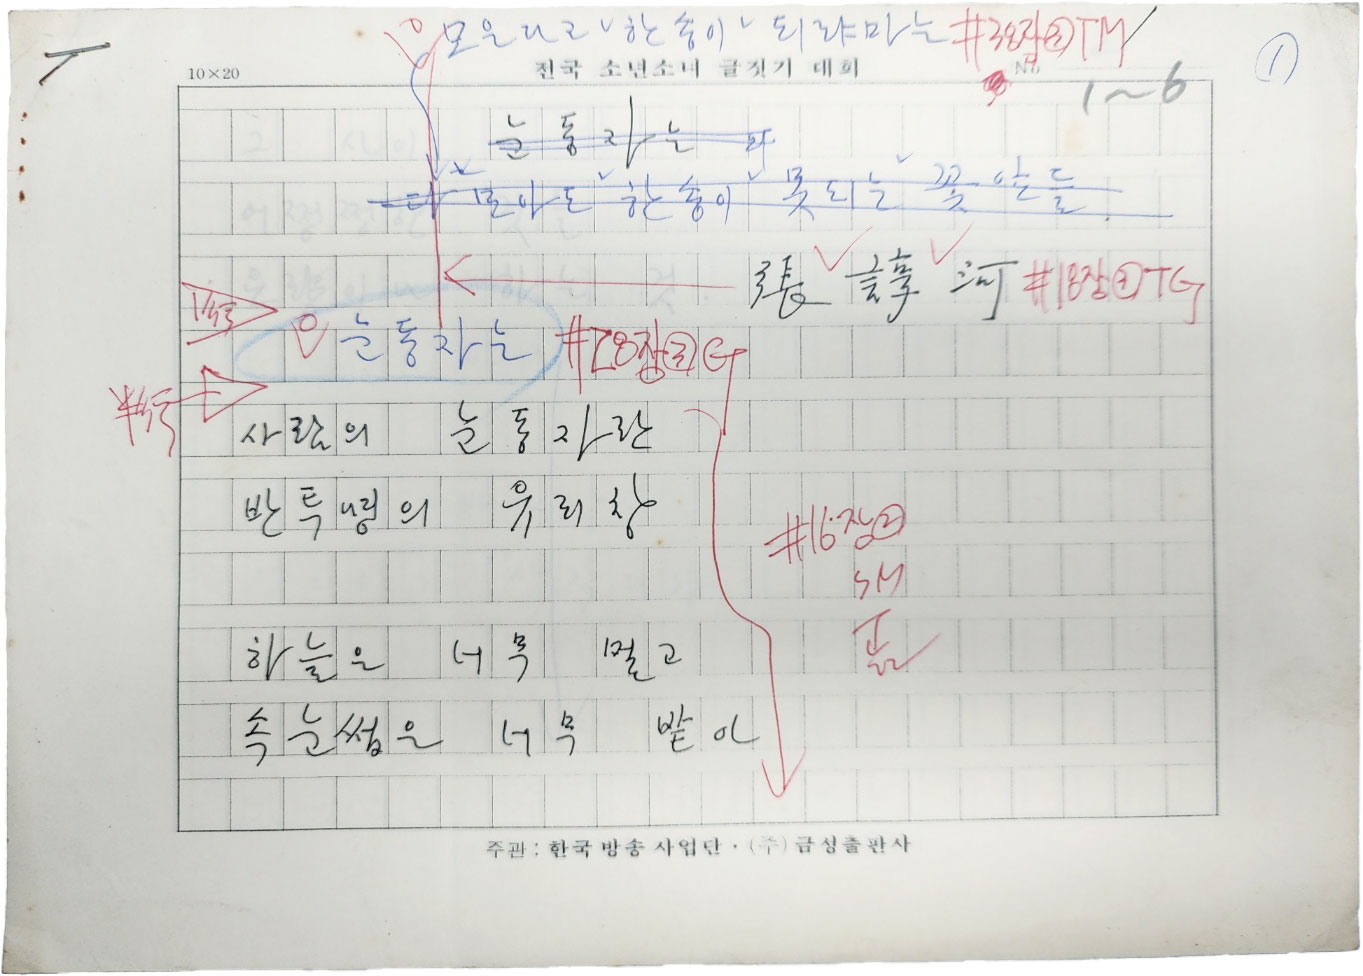 모은다고 한 송이 되랴마는 #38장②TM
10×20
전국 소년소녀 글짓기 대회
No
①
1~6
눈동자는
다 모아도 한 송이 못 되는 꽃 안들
張 諄 河 #18장②TG
눈동자는 #28장②G
사람의 눈동자란
반투명의 유리창
#16장②
하늘은 너무 멀고
속눈썹은 너무 밭아
주관 : 한국 방송 사업단 · (주) 금성출판사